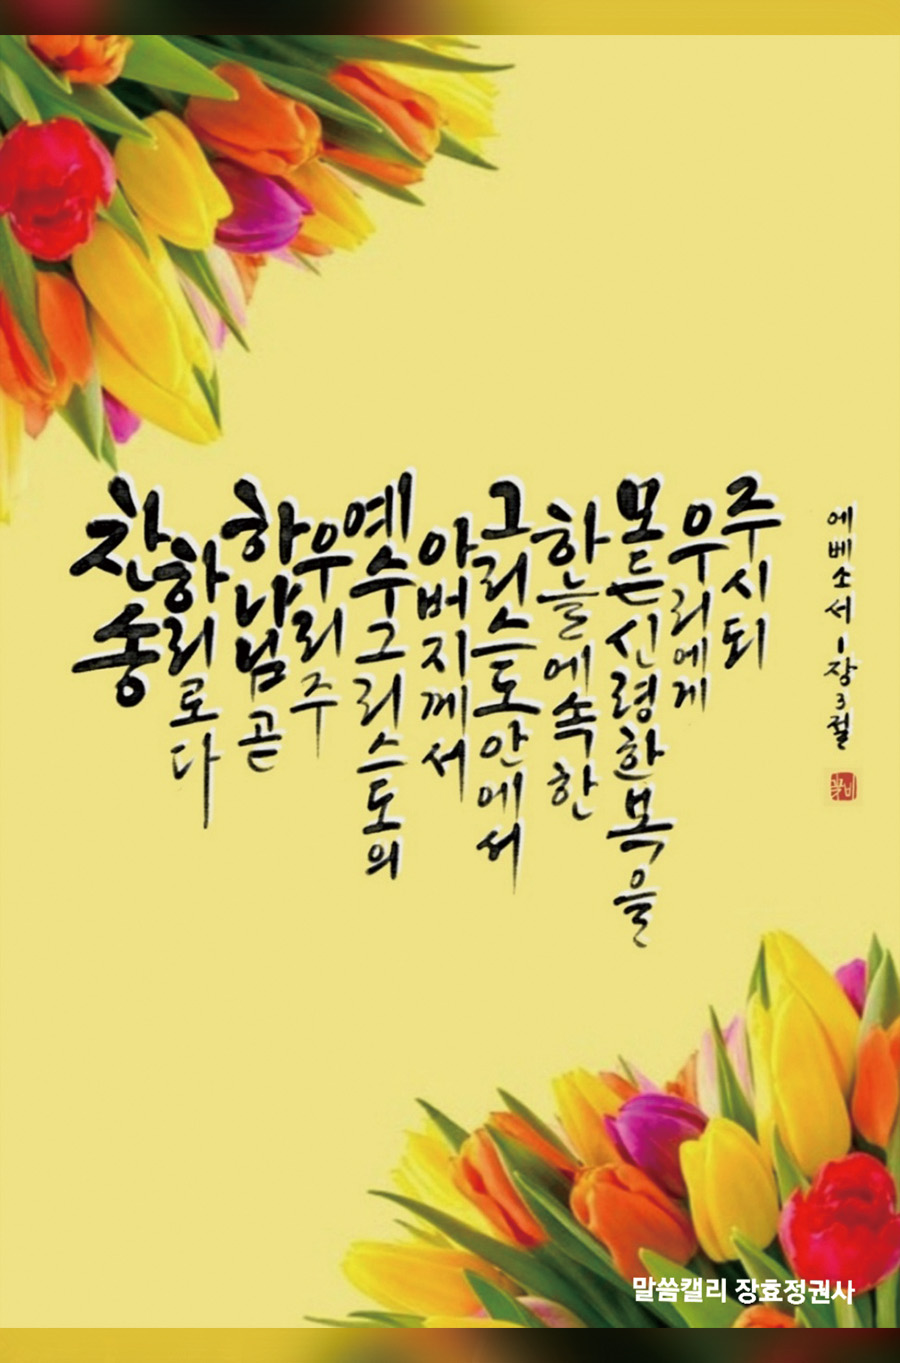 찬송
하리로다
하나님 곧
우리 주
예수 그리스도의
아버지께서
그리스도 안에서
하늘에 속한
모든 신령한 복을
우리에게
주시되
에베소서 1장 3절
말씀캘리 장효정권사